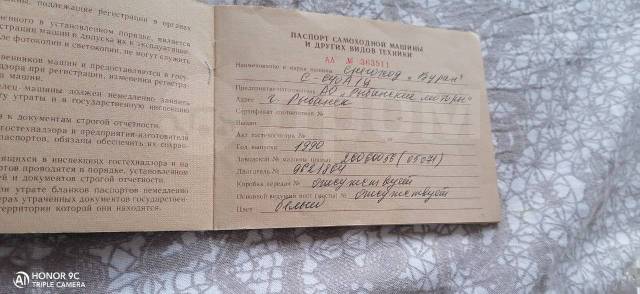 подлежащие регистрации в органах
в установленном порядке, является
страции машин и допуска их к эксплуатации.
фотокопии и светокопии, не могут служить
машин и предоставляются в гос-
надзора при регистрации, изменении регистра-
машин.
лец машины должен немедленно заявить
утраты и в государственную инспекцию
к документам строгой отчетности.
гостехнадзора и предприятия-изготовители
паспортов, обязаны обеспечить их сохран-
щихся в инспекциях гостехнадзора и на
портов проводятся в порядке, установленном
ей и документов строгой отчетности.
ри утрате бланков паспортов немедленно
ерах утраченных документов государствен-
территории которой они находятся.
ПАСПОРТ САМОХОДНОЙ МАШИНЫ
И ДРУГИХ ВИДОВ ТЕХНИКИ
АА № 363911
Наименование и марка машины снегоход „Буран"
Предприятие-изготовитель АО „Рыбинские моторы"
Адрес г. Рыбинск
Сертификат соответствия №
Выдан
Акт гостехприемки №
Год выпуска 1990
Заводской № машины (рамы)
Двигатель № 9821864
Коробка передач № отсутствует
Основной ведущий мост (мосты) № отсутствует
Цвет белый
HONOR 9C
AI TRIPLE CAMERA